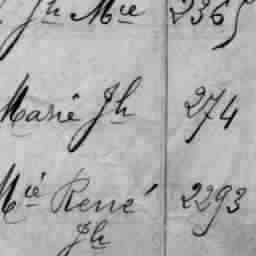 Jh Mie 2365
Marie Jh 274
Mié René 2293
Jh